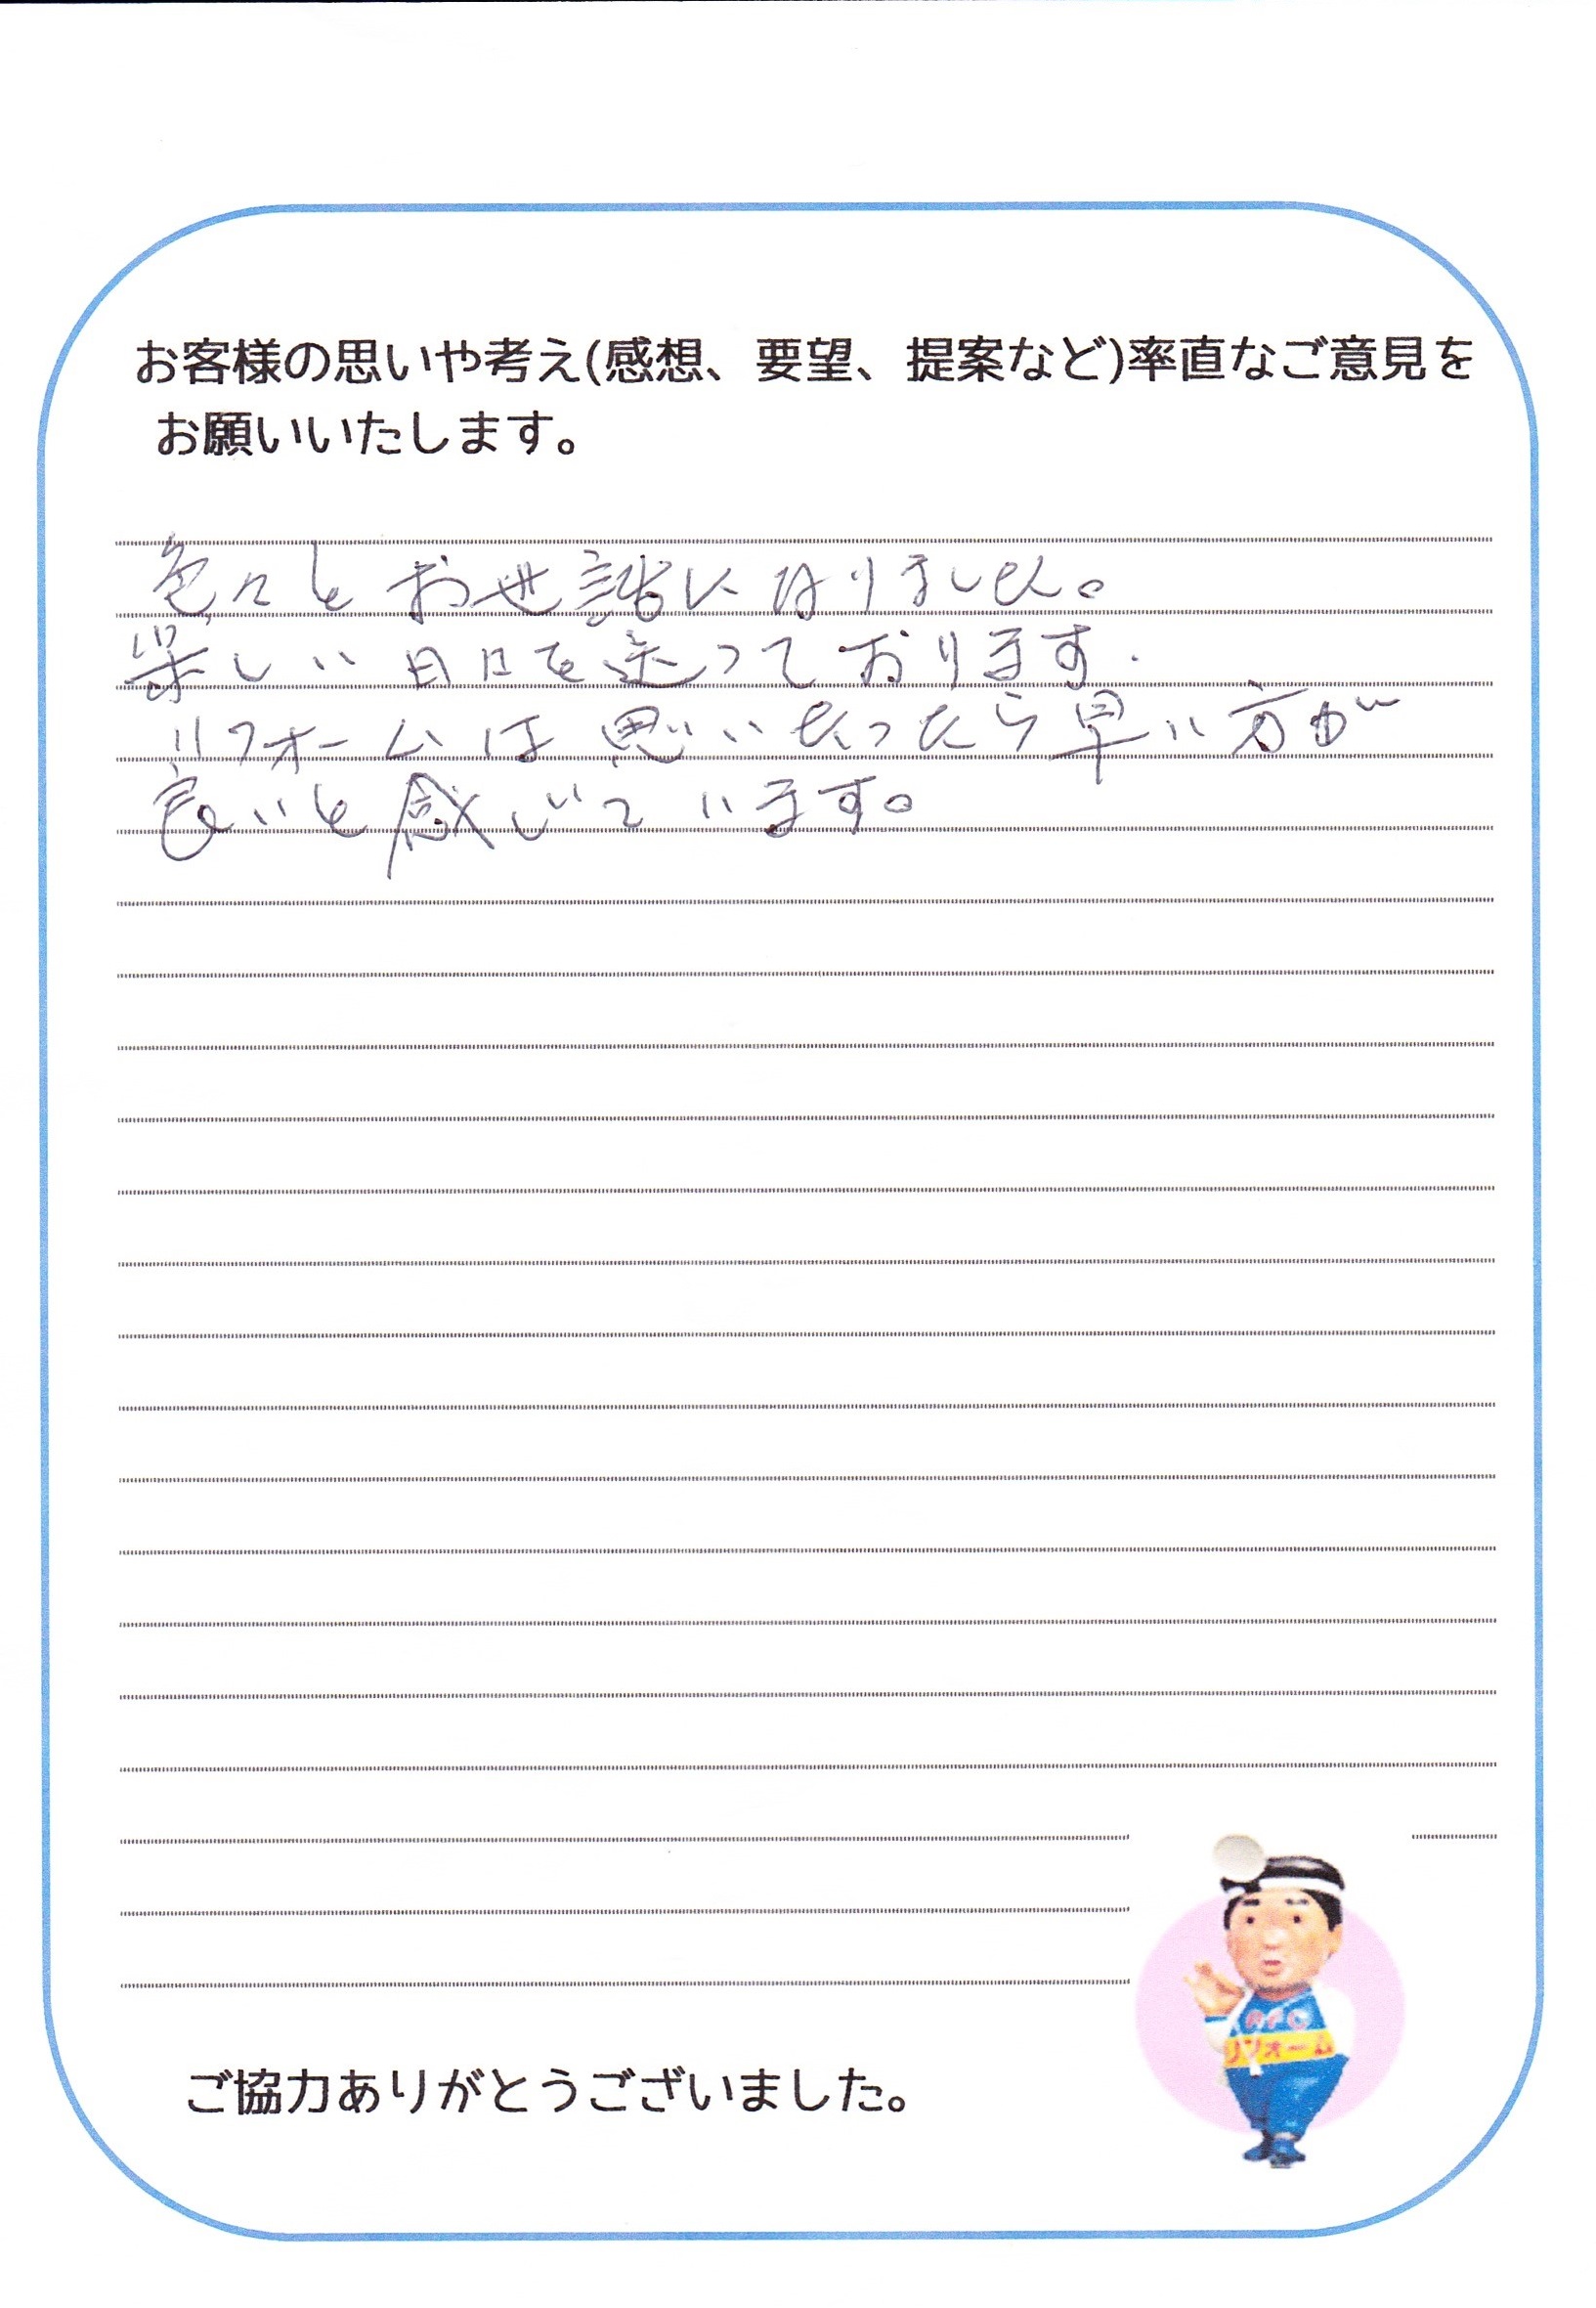 お客様の思いや考え(感想、要望、提案など)率直なご意見を
お願いいたします。
色々とお世話になりました。
楽しい日々を送っております.
リフォームは思いたったら早い方が
良いと感じています。
AFC
リフォーム
ご協力ありがとうございました。